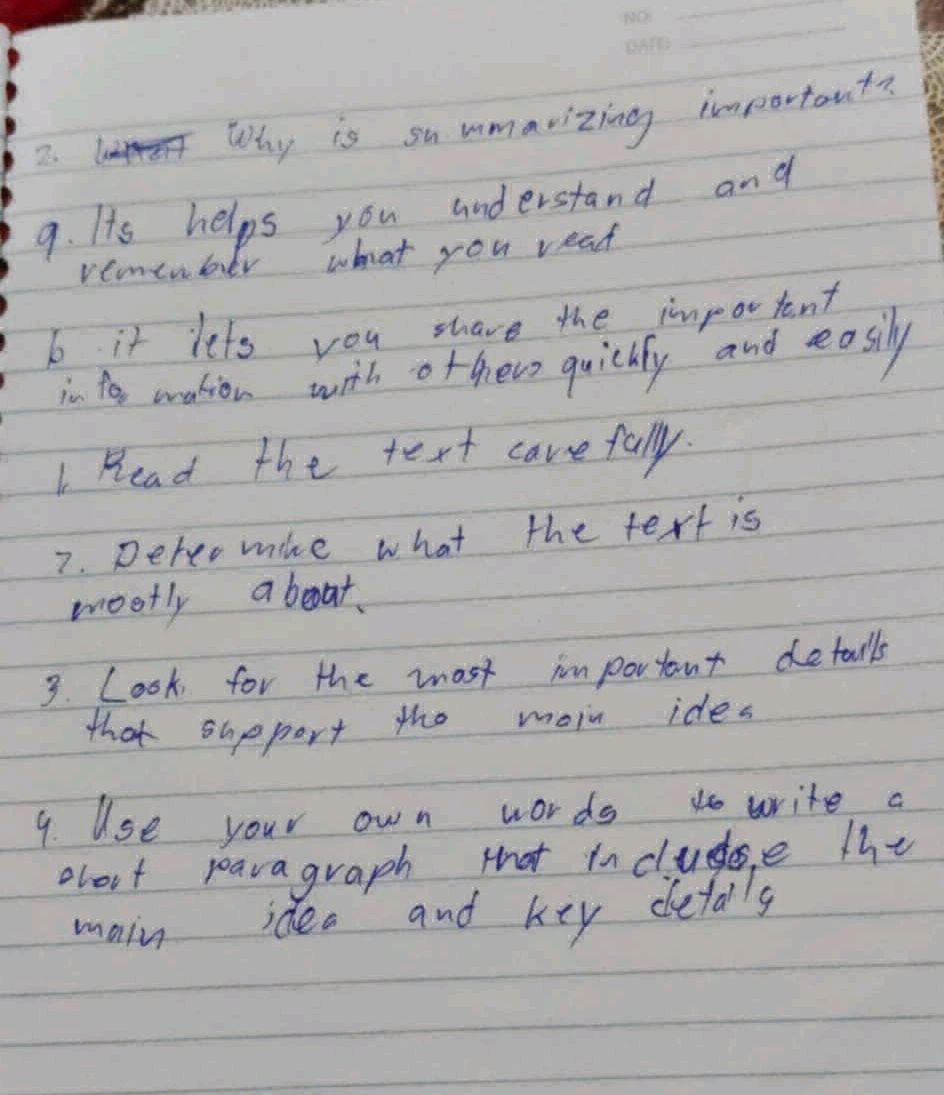 NO:
DATE:
2. Why is summarizing important?
a. Its helps you understand and
remember what you read
b. it lets you share the important
information with others quickly and easily
1. Read the text carefully.
2. Determine what the text is
mostly about.
3. Look for the most important details
that support the main idea
4. Use your own words to write a
short paragraph that include the
main idea and key details